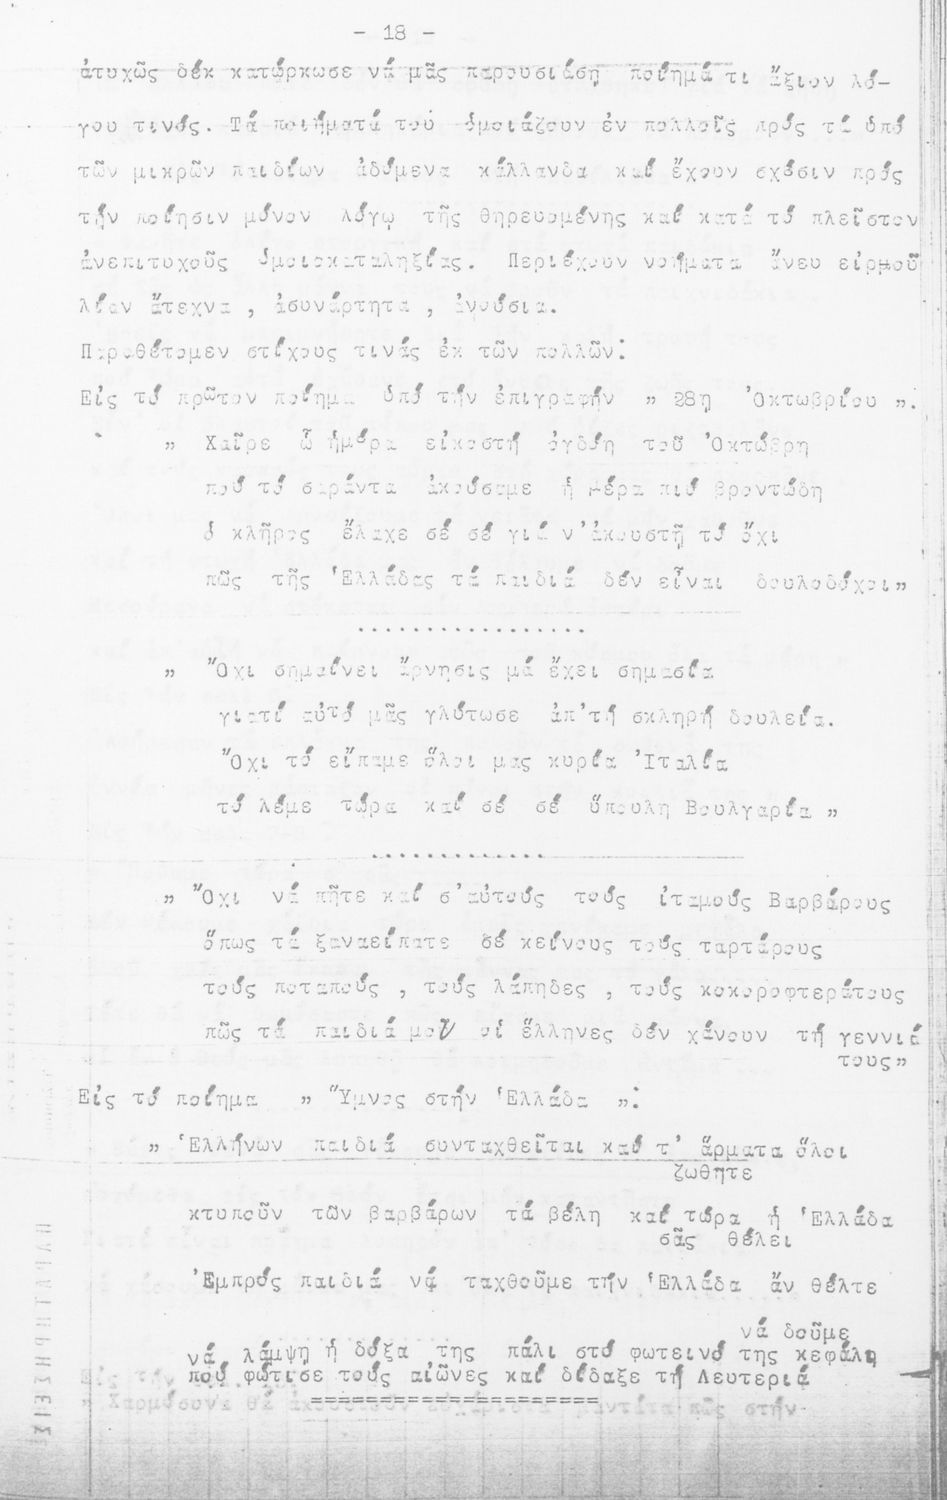 - 18 -
ἀτυχῶς δέκ κατώρκωσε νά μᾶς παρουσιάση ποίημά τι ἄξιον λό-
γου τινός. Τά ποιήματά του ὁμοιάζουν ἐν πολλοῖς πρός τά ὑπό
τῶν μικρῶν παιδίων ἀδόμενα κάλλανδα καί ἔχουν σχέσιν πρός
τήν ποίησιν μόνον λόγῳ τῆς θηρευομένης καί κατά τό πλεῖστον
ἀνεπιτυχοῦς ὁμοιοκαταληξίας. Περιέχουν νοήματα ἄνευ εἱρμοῦ
λίαν ἄτεχνα , ἀσυνάρτητα , ἀνούσια.
Παραθέτομεν στίχους τινάς ἐκ τῶν πολλῶν:
Εἰς τό πρῶτον ποίημα ὑπό τήν ἐπιγραφήν " 28η Ὀκτωβρίου ".
" Χαῖρε ὦ ἡμέρα εἰκοστή ὀγδόη τοῦ Ὀκτώβρη
πού τό σαράντα ἀκούσαμε ἡ μέρα πιό βροντώδη
ὁ κλῆρος ἔλαχε σέ σέ γιά ν'ἀκουστῆ τό ὄχι
πῶς τῆς Ἑλλάδας τά παιδιά δέν εἶναι δουλοδόχοι"
.................
" Ὄχι σημαίνει ἄρνησις μά ἔχει σημασία
γιατί αὐτό μᾶς γλύτωσε ἀπ'τή σκληρή δουλεία.
Ὄχι τό εἴπαμε ὅλοι μας κυρία Ἰταλία
τό λέμε τώρα καί σέ σέ ὕπουλη Βουλγαρία "
.............
" Ὄχι νά πῆτε καί σ'αὐτούς τούς ἰταμούς Βαρβάρους
ὅπως τά ξαναείπατε δέ κείνους τούς ταρτάρους
τούς ποταπούς , τούς λάπηδες , τούς κοκοροφτεράτους
πῶς τά παιδιά μου οἱ ἕλληνες δέν χάνουν τή γεννιά
τους"
Εἰς τό ποίημα " Ὕμνος στήν Ἑλλάδα ":
" Ἑλλήνων παιδιά συνταχθεῖται καί τ' ἅρματα ὅλοι
ζωθητε
κτυποῦν τῶν βαρβάρων τά βέλη καί τώρα ἡ Ἑλλάδα
σᾶς θέλει
Ἐμπρός παιδιά νά ταχθοῦμε τήν Ἑλλάδα ἄν θέλτε
νά δοῦμε
νά λάμψη ἡ δόξα της πάλι στό φωτεινό της κεφάλι
πού φώτισε τούς αἰῶνες καί δίδαξε τή Λευτεριά
==========================